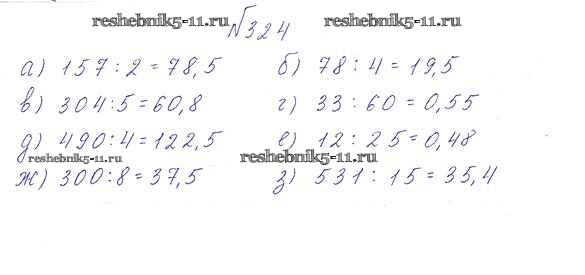 reshebnik5-11.ru
№324
reshebnik5-11.ru
а) 157 : 2 = 78,5 б) 78 : 4 = 19,5
в) 304 : 5 = 60,8 г) 33 : 60 = 0,55
д) 490 : 4 = 122,5 е) 12 : 25 = 0,48
reshebnik5-11.ru
reshebnik5-11.ru
ж) 300 : 8 = 37,5 з) 531 : 15 = 35,4